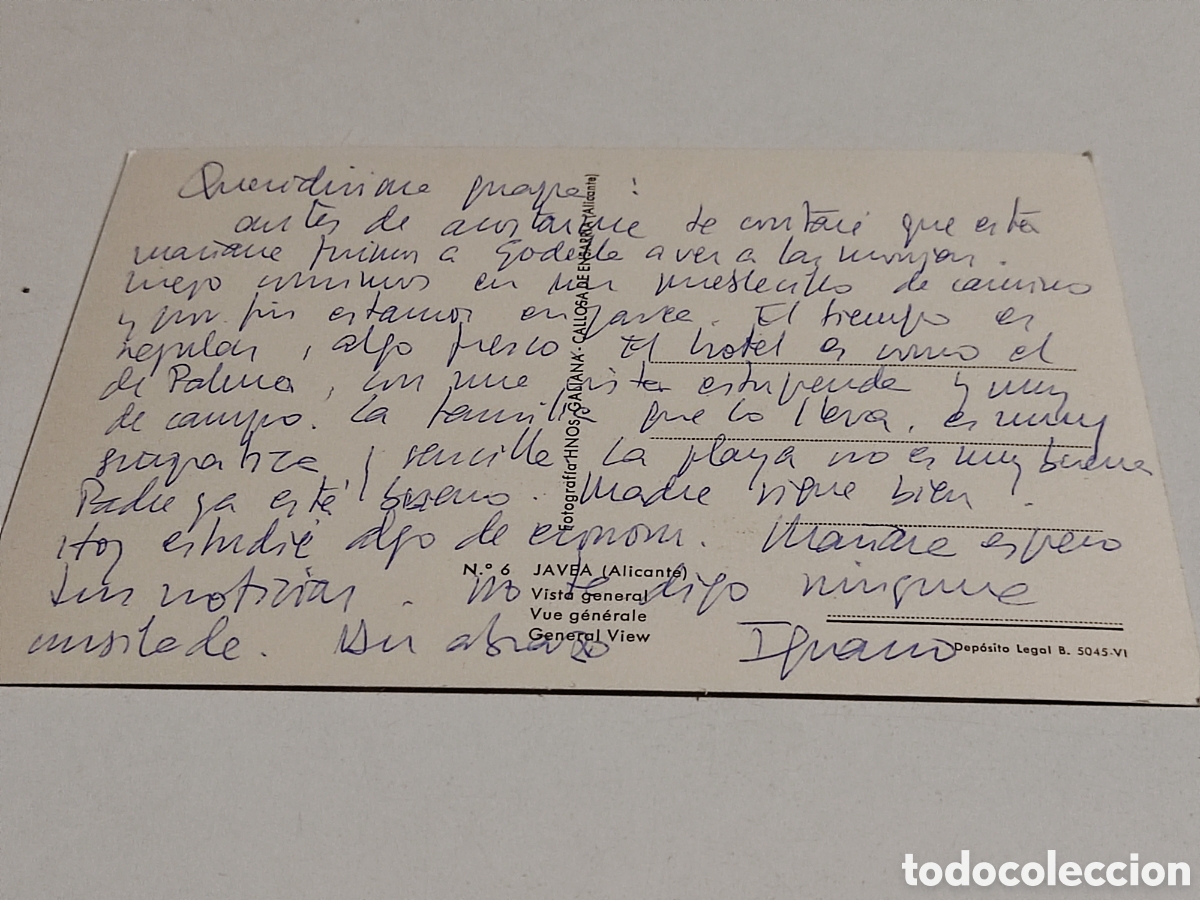 Queridísima guapa:
antes de acostarme te contaré que esta
mañana fuimos a Godella a ver a las monjas.
luego comimos en un pueblecito de camino
y por fin estamos en Javea. El tiempo es
regular, algo fresco. El hotel es como el
de Palma, con una vista estupenda y muy
de campo. La familia que lo lleva, es muy
simpatica y sencilla. La playa no es muy buena
Padre ya está bueno. Madre sigue bien.
Hoy estudié algo de econom. Mañana espero
tus noticias. No te digo ninguna
Un abrazo Ignacio
Fotografía HNOS. GALIANA - CALLOSA DE ENSARRIÁ (Alicante)
N.º 6 JAVEA (Alicante)
Vista general
Vue générale
General View
Depósito Legal B. 5045-VI
todocoleccion